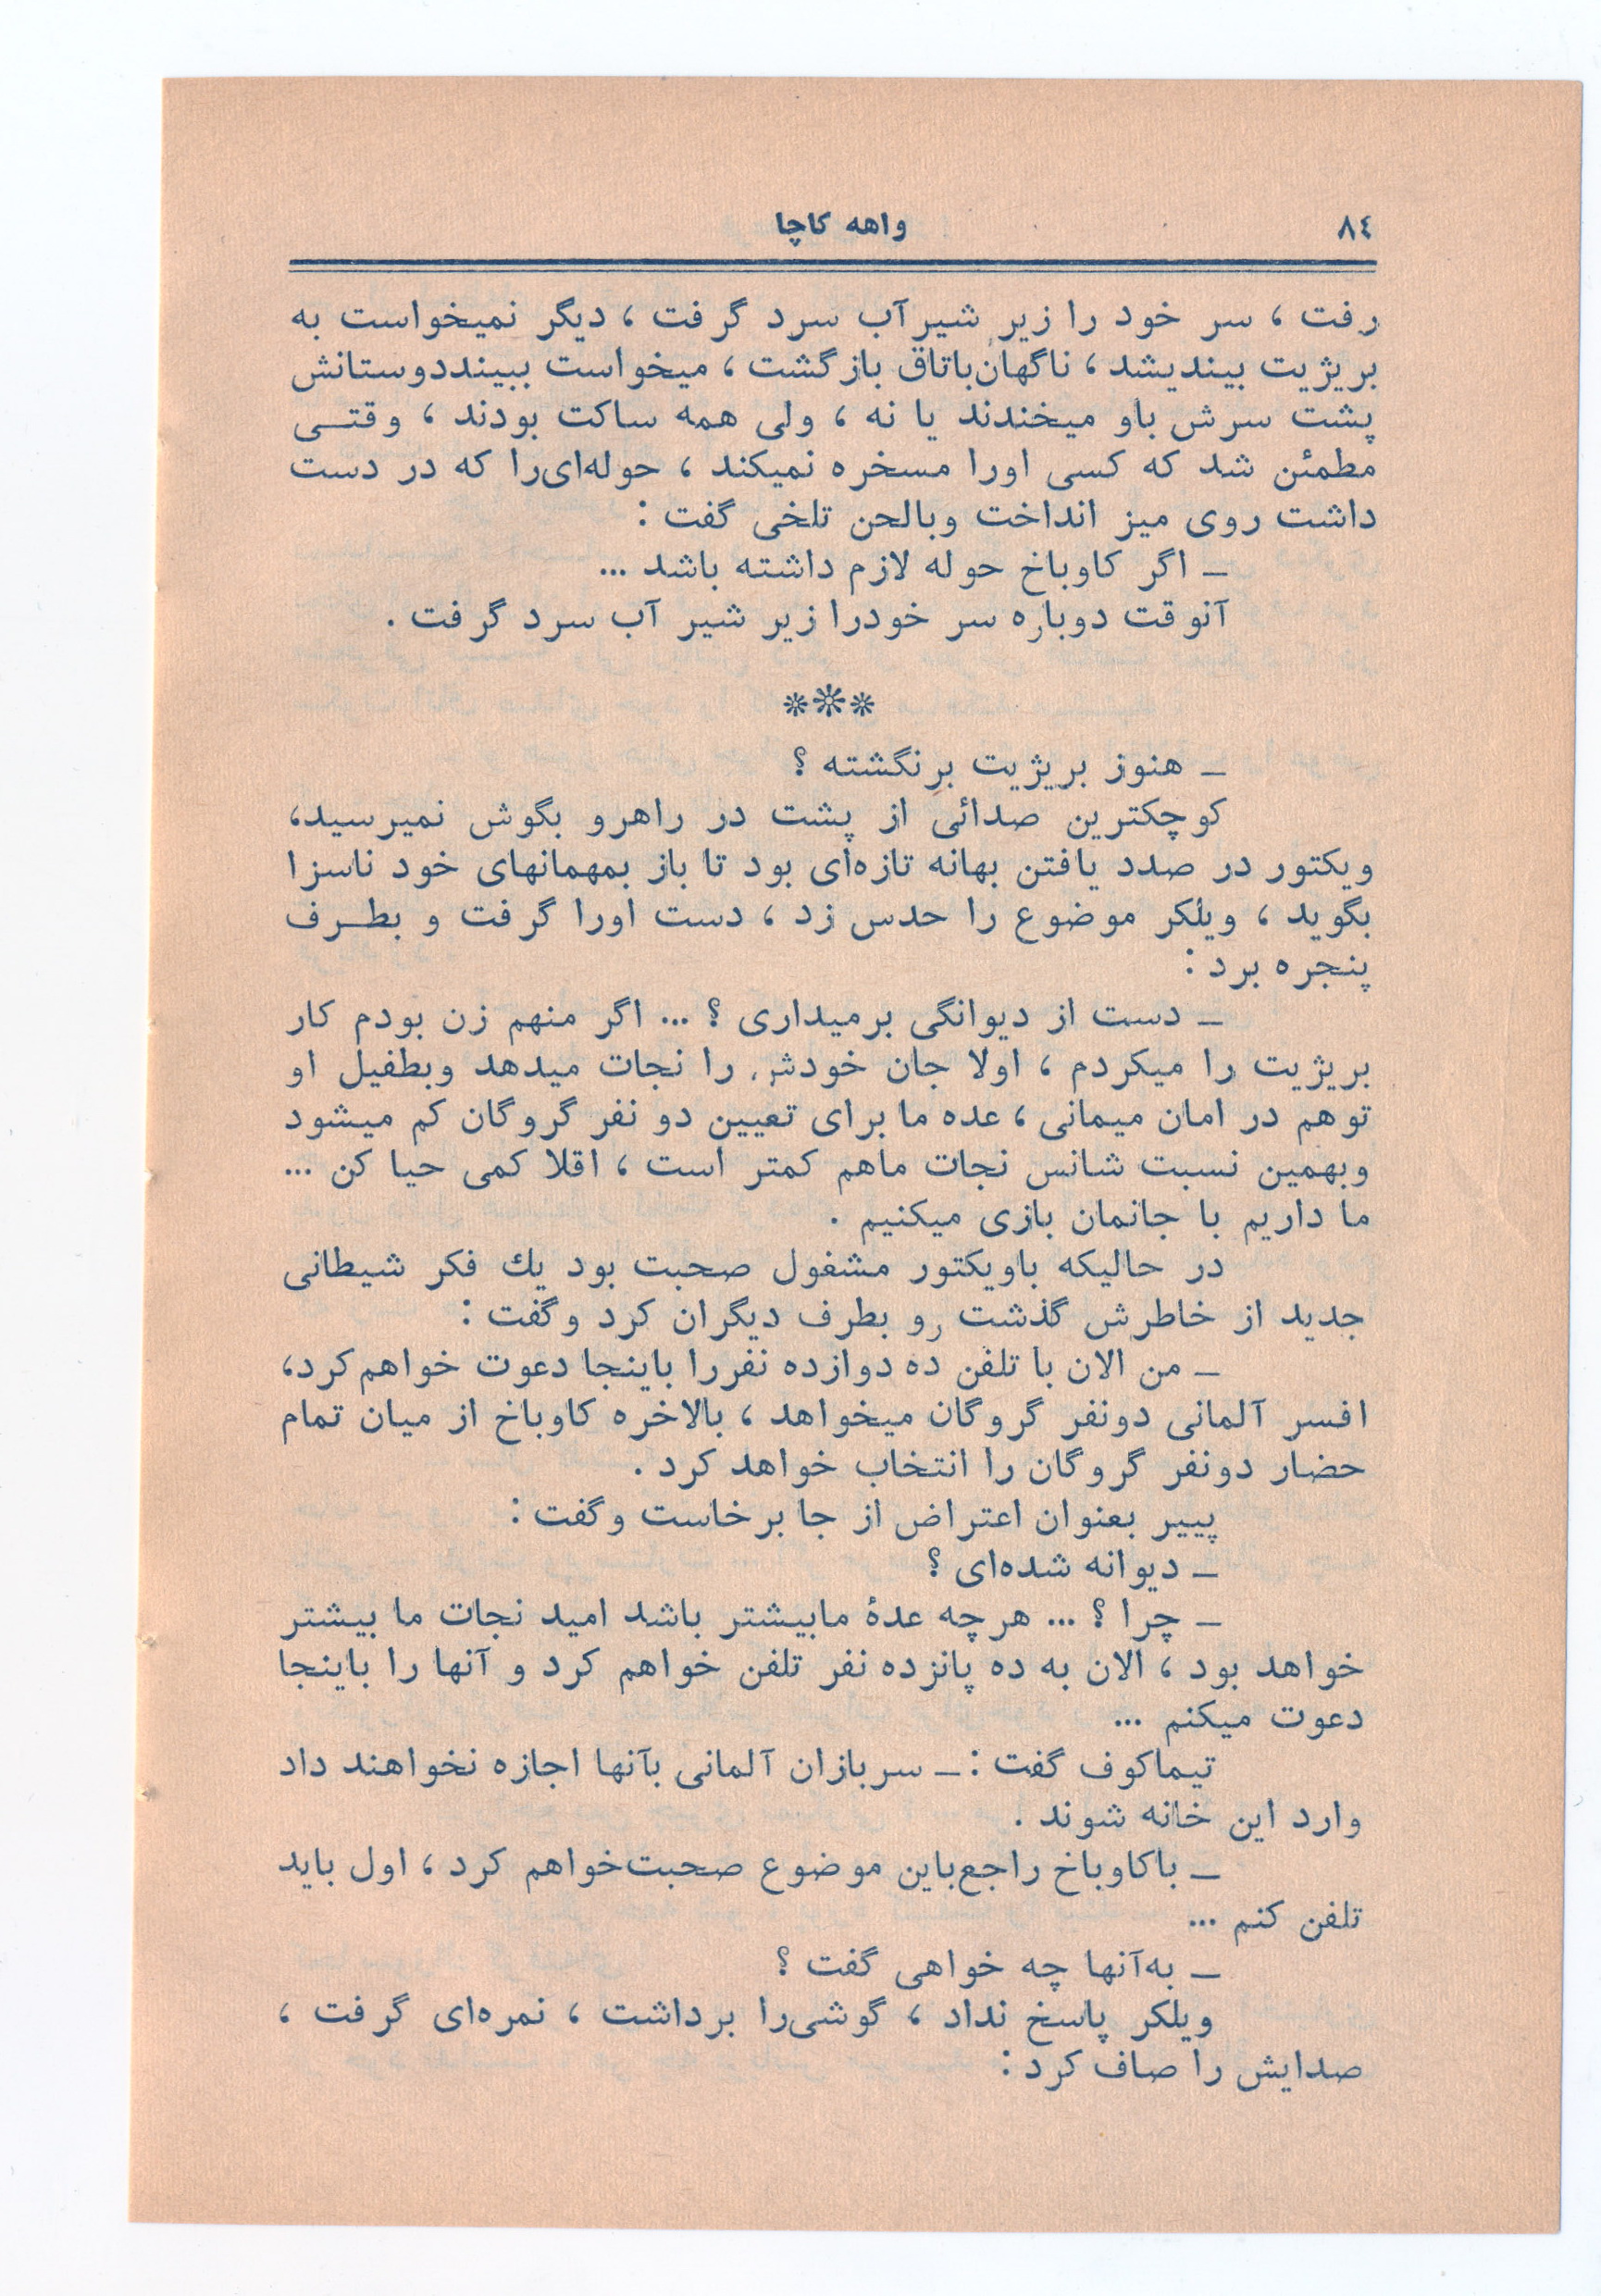 ٨٤
واهه کاچا
رفت ، سر خود را زیر شیرآب سرد گرفت ، دیگر نمیخواست به
بریژیت بیندیشد ، ناگهان‌باتاق بازگشت ، میخواست ببینددوستانش
پشت سرش باو میخندند یا نه ، ولی همه ساکت بودند ، وقتــی
مطمئن شد که کسی اورا مسخره نمیکند ، حوله‌ای‌را که در دست
داشت روی میز انداخت وبالحن تلخی گفت :
ـ اگر کاوباخ حوله لازم داشته باشد ...
آنوقت دوباره سر خودرا زیر شیر آب سرد گرفت .
***
ـ هنوز بریژیت برنگشته ؟
کوچکترین صدائی از پشت در راهرو بگوش نمیرسید،
ویکتور در صدد یافتن بهانه تازه‌ای بود تا باز بمهمانهای خود ناسزا
بگوید ، ویلکر موضوع را حدس زد ، دست اورا گرفت و بطــرف
پنجره برد :
ـ دست از دیوانگی برمیداری ؟ ... اگر منهم زن بودم کار
بریژیت را میکردم ، اولا جان خودش را نجات میدهد وبطفیل او
توهم در امان میمانی ، عده ما برای تعیین دو نفر گروگان کم میشود
وبهمین نسبت شانس نجات ماهم کمتر است ، اقلا کمی حیا کن ...
ما داریم با جانمان بازی میکنیم .
در حالیکه باویکتور مشغول صحبت بود یك فکر شیطانی
جدید از خاطرش گذشت رو بطرف دیگران کرد وگفت :
ـ من الان با تلفن ده دوازده نفررا باینجا دعوت خواهم‌کرد،
افسر آلمانی دونفر گروگان میخواهد ، بالاخره کاوباخ از میان تمام
حضار دونفر گروگان را انتخاب خواهد کرد .
پییر بعنوان اعتراض از جا برخاست وگفت :
ـ دیوانه شده‌ای ؟
ـ چرا ؟ ... هرچه عدۀ مابیشتر باشد امید نجات ما بیشتر
خواهد بود ، الان به ده پانزده نفر تلفن خواهم کرد و آنها را باینجا
دعوت میکنم ...
تیماکوف گفت : ـ سربازان آلمانی بآنها اجازه نخواهند داد
وارد این خانه شوند .
ـ باکاوباخ راجع‌باین موضوع صحبت‌خواهم کرد ، اول باید
تلفن کنم ...
ـ به‌آنها چه خواهی گفت ؟
ویلکر پاسخ نداد ، گوشی‌را برداشت ، نمره‌ای گرفت ،
صدایش را صاف کرد :